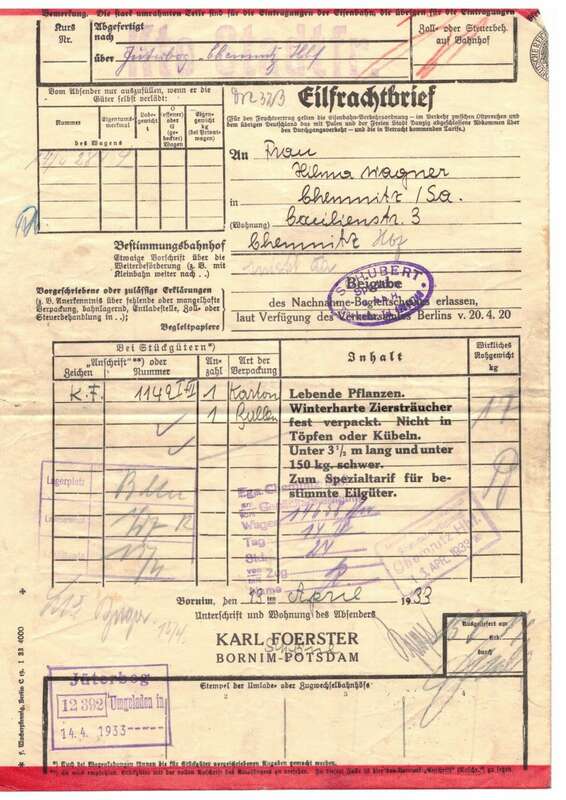 Bemerkung. Die stark umrahmten Teile sind für die Eintragungen der Eisenbahn, die übrigen für die Eintragungen
Kurs Nr.
Abgefertigt
nach
über Jüterbog-Chemnitz Hbf
Zoll- oder Steuerbeh.
auf Bahnhof
Vom Absender nur auszufüllen, wenn er die
Güter selbst verlädt:
Nummer
Eigentums-
merkmal
des Wagens
Lade-
gewicht
t
O
(offener)
oder
G
(ge-
deckter)
Wagen
Eigen-
gewicht
kg
(bei Privat-
wagen)
Eilfrachtbrief
(Für den Frachtvertrag gelten die Eisenbahn-Verkehrsordnung — im Verkehr zwischen Ostpreußen und
dem übrigen Deutschland das mit Polen und der Freien Stadt Danzig abgeschlossene Abkommen über
den Durchgangsverkehr — und die in Betracht kommenden Tarife.)
An Frau
Hilma Wagner
in Chemnitz/Sa.
(Wohnung) Cäcilienstr. 3
Bestimmungsbahnhof Chemnitz Hbf
Etwaige Vorschrift über die
Weiterbeförderung (z. B. mit
Kleinbahn weiter nach . .)
Vorgeschriebene oder zulässige Erklärungen
(z. B. Anerkenntnis über fehlende oder mangelhafte
Verpackung, bahnlagernd, Entladestelle, Zoll- oder
Steuerbehandlung in . .)
Begleitpapiere
SCHUBERT
Beigabe
des Nachnahme-Begleitscheins erlassen,
laut Verfügung des Verkehrsamtes Berlins v. 20. 4. 20
Bei Stückgütern*)
„Anschrift"**) oder
Zeichen
Nummer
An-
zahl
Art der
Verpackung
Inhalt
Wirkliches
Rohgewicht
kg
K.F. 1149 I-II 1 Karton
1 Ballen
Lebende Pflanzen.
Winterharte Ziersträucher
fest verpackt. Nicht in
Töpfen oder Kübeln.
Unter 3½ m lang und unter
150 kg. schwer.
Zum Spezialtarif für be-
stimmte Eilgüter.
17
Lagerplatz
Wagen
Tag
Zug
Name
Chemnitz Hbf.
APRIL 1933
Bornim, den 13ten April 1933
Unterschrift und Wohnung des Absenders
KARL FOERSTER
BORNIM-POTSDAM
Ausgeliefert am
durch
Jüterbog
12 392 Umgeladen in
14. 4. 1933
Stempel der Umlade- oder Zugwechselbahnhöfe
2
3
4
*) Auch bei Wagenladungen können die für Stückgüter vorgeschriebenen Angaben gemacht werden.